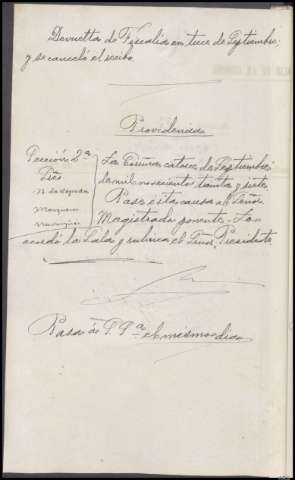 Devuelta de Fiscalía en trece de Septiembre;
y se canceló el recibo.
Providencia
Sección 2ª
Sres
La Coruña catorce de Septiembre
de mil novecientos treinta y siete.
Pase esta causa al Señor
Magistrado ponente. Lo
acordó la Sala y rubrica el Señor Presidente
Pasa de S. Sª el mismo día